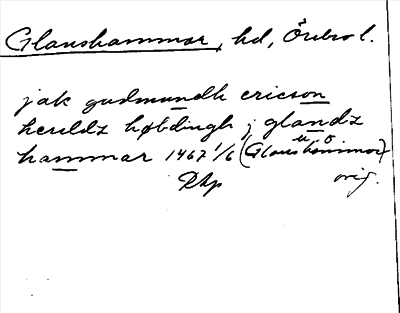 Glanshammar, hd, Örebro l.
jak gudmundh ericson
hereldz høbdingh j glandz
hammar 1467 1/6 (Glanshammar)
Dhp orig.